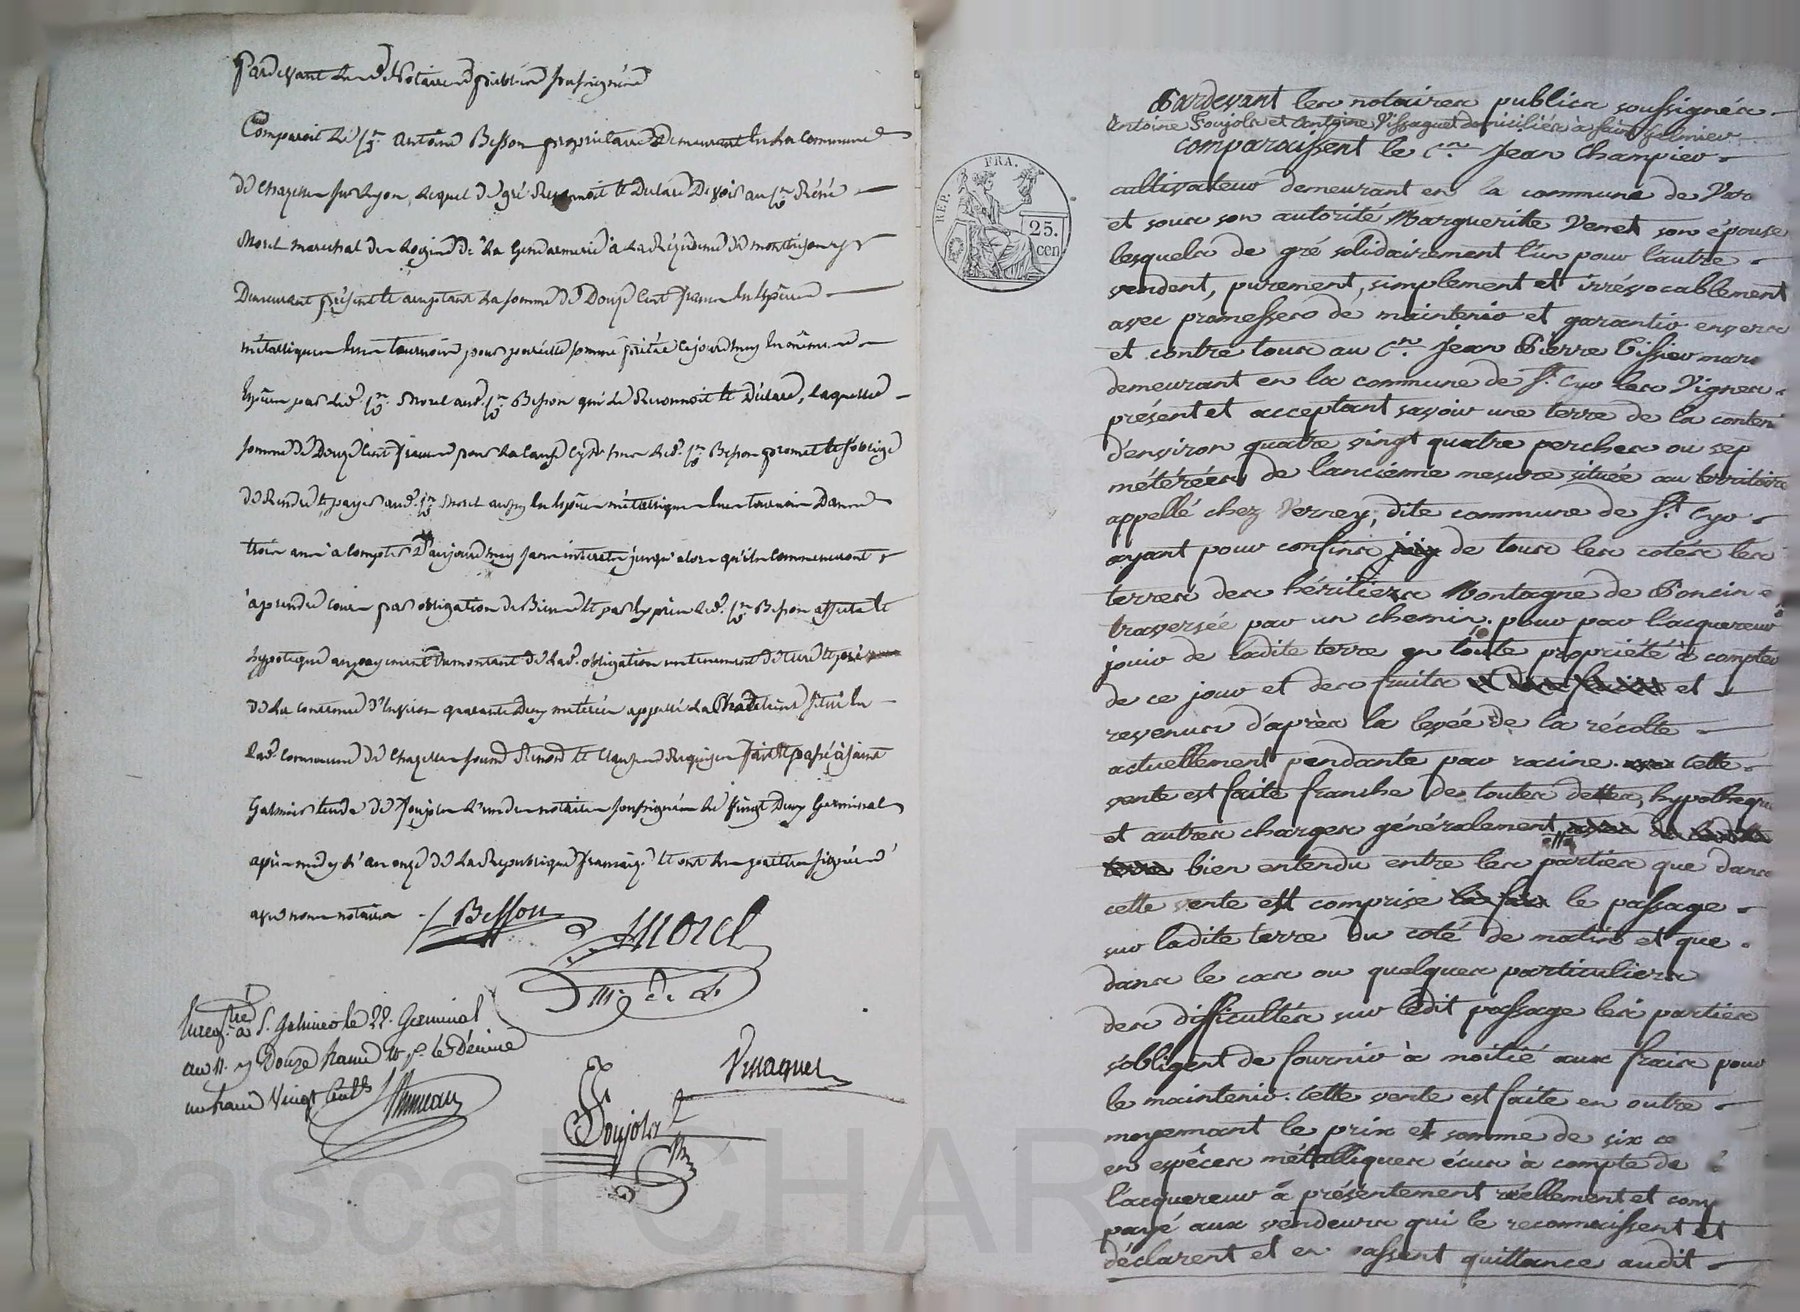 Pardevant Les Notaires publics soussignés
Comparoit Le Sr. Antoine Besson propriétaire Demeurant en La Commune
de Chazelles sur Lyon, Lequel de gré Reconnoit et Déclare Devoir au Sr
Morel marechal des Logis de La Gendarmerie à La Résidence de montbrison y
Demeurant présent et acceptant La somme de Douze Cent francs En Espèces
métalliques pour pareille somme prêtée Cejourd'huy En mêmes
Espèces par Led. Sr. Morel aud. Sr. Besson qui Le Reconnoit et Déclare, Laquelle
somme de Douze Cent francs pour La Cause Cy dessus Led. Sr. Besson promet et s'oblige
de Rendre et payer aud. Sr. Morel aussy En Espèces métalliques Dans
trois ans à Compter D'aujourd'huy sans interets jusqu'alors qu'ils Commenceront
à prendre Cours par obligation de Biens et par Exprès Led. Sr. Besson affecte et
hypotèque au payement Du montant de Lad. obligation un tenement de terre et pré
de La Contenue D'Environ quarante Deux métérées appellé La situé En
Lad. Commune de Chazelles fait et passé à saint
Galmier étude de Foujols L'un des notaires soussignés Le Vingt Deux Germinal
après midy L'an onze de La République française et ont Les parties signé
avec nous notaires
Besson
Morel
Mr. de L.
Enregtré. à S. Galmier le 22. Germinal
an 11. Douze francs le Décime
un franc Vingt Cents
Vissaguet
Foujols
Nre
REP. FRA.
25.
cen
Pardevant les notaires publics soussignés
Antoine Foujols et Antoine Vissaguet domiciliés à saint galmier
comparaissent le Cen. Jean Champier
cultivateur demeurant en la commune de
et sous son autorité Margueritte Venet son épouse
lesquels de gré solidairement l'un pour l'autre
vendent, purement, simplement et irrévocablement
avec promesses de maintenir et garantir envers
et contre tous au Cen. Jean Pierre Tissieu mar
demeurant en la commune de St. Cyr les Vignes
présent et acceptant savoir une terre de la conten
d'environ quatre vingt quatre perches ou sep
métérées de l'ancienne mesure située au territoire
appellé chez Verney, dite commune de St. Cyr
ayant pour confins de tous les cotés les
terres des héritiers Montagne de Poncin e
traversée par un chemin. pour par l'acquereur
jouir de ladite terre en toute propriété à compter
de ce jour et des fruits et
revenus d'après la levée de la récolte
actuellement pendante par racine. cette
vente est faite franche de toutes dettes, hypotheque
et autres charges généralement
bien entendu entre les parties que dans
cette vente est comprise le passage
sur ladite terre du coté de matin et que
dans le cas ou quelques particuliers
des difficultés sur ledit passage les parties
s'obligent de fournir à moitié aux frais pour
le maintenir. Cette vente est faite en outre
moyennant le prix et somme de six ce
en espèces métalliques écus à compte de
l'acquereur a présentement réellement et comp
payé aux vendeurs qui le reconnaissent et
déclarent et en passent quittance audit
Pascal CHAR